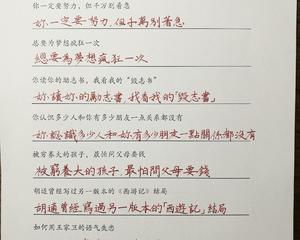 你一定要努力，但千万别着急
妳一定要努力，但千萬別着急
总要为梦想疯狂一次
總要為夢想瘋狂一次
你读你的励志书，我看我的“毁志书”
妳讀妳的勵志書，我看我的「毀志書」
你认识多少人和你有多少朋友一点关系都没有
妳認識多少人和妳有多少朋友一點關係都沒有
被穷养大的孩子，最怕问父母要钱
被窮養大的孩子，最怕問父母要錢
胡适曾经写过另一版本的《西游记》结局
胡適曾經寫過另一版本的「西遊記」結局
如何用王家卫的语气失恋